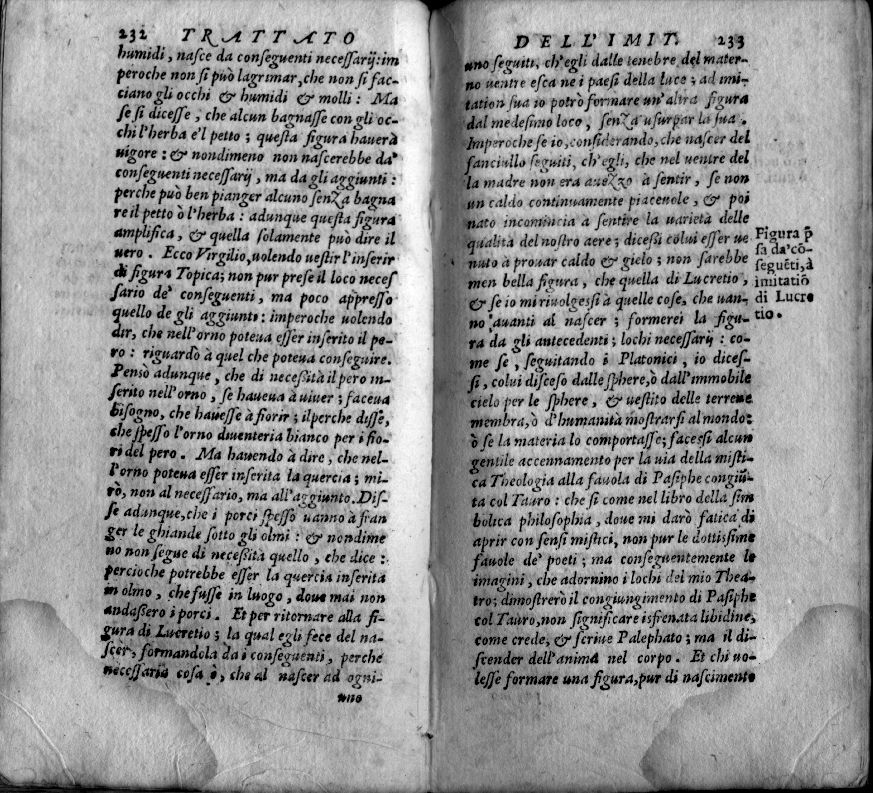 232 TRATTATO
humidi, nasce da conseguenti necessarij: im
peroche non si può lagrimar, che non si fac-
ciano gli occhi & humidi & molli: Ma
se si dicesse, che alcun bagnasse con gli oc-
chi l'herba e'l petto; questa figura hauerà
uigore: & nondimeno non nascerebbe da'
conseguenti necessarij, ma da gli aggiunti:
perche può ben pianger alcuno senza bagna
re il petto ò l'herba: adunque questa figura
amplifica, & quella solamente può dire il
uero. Ecco Virgilio, uolendo uestir l'inserir
di figura Topica; non pur prese il loco neces
sario de' conseguenti, ma poco appresso
quello de gli aggiunti: imperoche uolendo
dir, che nell'orno poteua esser inserito il pe-
ro: riguardò à quel che poteua conseguire.
Pensò adunque, che di necessità il pero in-
serito nell'orno, se haueua à uiuer; faceua
bisogno, che hauesse à fiorir; il perche disse,
che spesso l'orno diuenteria bianco per i fio-
ri del pero. Ma hauendo à dire, che nel-
l'orno poteua esser inserita la quercia; mi-
rò, non al necessario, ma all'aggiunto. Dis-
se adunque, che i porci spesso uanno à fran
ger le ghiande sotto gli olmi: & nondime
no non segue di necessità quello, che dice:
percioche potrebbe esser la quercia inserita
in olmo, che fusse in luogo, doue mai non
andassero i porci. Et per ritornare alla fi-
gura di Lucretio; la qual egli fece del na-
scer, formandola da i conseguenti, perche
necessaria cosa è, che al nascer ad ogni-
uno
DELL'IMIT. 233
uno seguiti, ch'egli dalle tenebre del mater-
no uentre esca ne i paesi della luce; ad imi-
tation sua io potrò formare un'altra figura
dal medesimo loco, senza usurpar la sua.
Imperoche se io, considerando, che nascer del
fanciullo seguiti, ch'egli, che nel uentre del
la madre non era auezzo à sentir, se non
un caldo continuamente piaceuole, & poi
nato incomincia à sentire la uarietà delle
qualità del nostro aere; dicessi colui esser ue
nuto à prouar caldo & gielo; non sarebbe
men bella figura, che quella di Lucretio,
& se io mi riuolgessi à quelle cose, che uan-
no auanti al nascer; formerei la figu-
ra da gli antecedenti; lochi necessarij: co-
me se, seguitando i Platonici, io dices-
si, colui disceso dalle sphere, ò dall'immobile
cielo per le sphere, & uestito delle terrene
membra, ò d'humanità mostrarsi al mondo:
ò se la materia lo comportasse; facessi alcun
gentile accennamento per la uia della misti-
ca Theologia alla fauola di Pasiphe congiũ-
ta col Tauro: che si come nel libro della sim
bolica philosophia, doue mi darò fatica di
aprir con sensi mistici, non pur le dottissime
fauole de' poeti; ma conseguentemente le
imagini, che adornino i lochi del mio Thea-
tro; dimostrerò il congiungimento di Pasiphe
col Tauro, non significare isfrenata libidine,
come crede, & scriue Palephato; ma il di-
scender dell'anima nel corpo. Et chi uo-
lesse formare una figura, pur di nascimento
Figura p̃
sa da' cõ-
seguẽti, à
imitatiõ
di Lucre
tio.